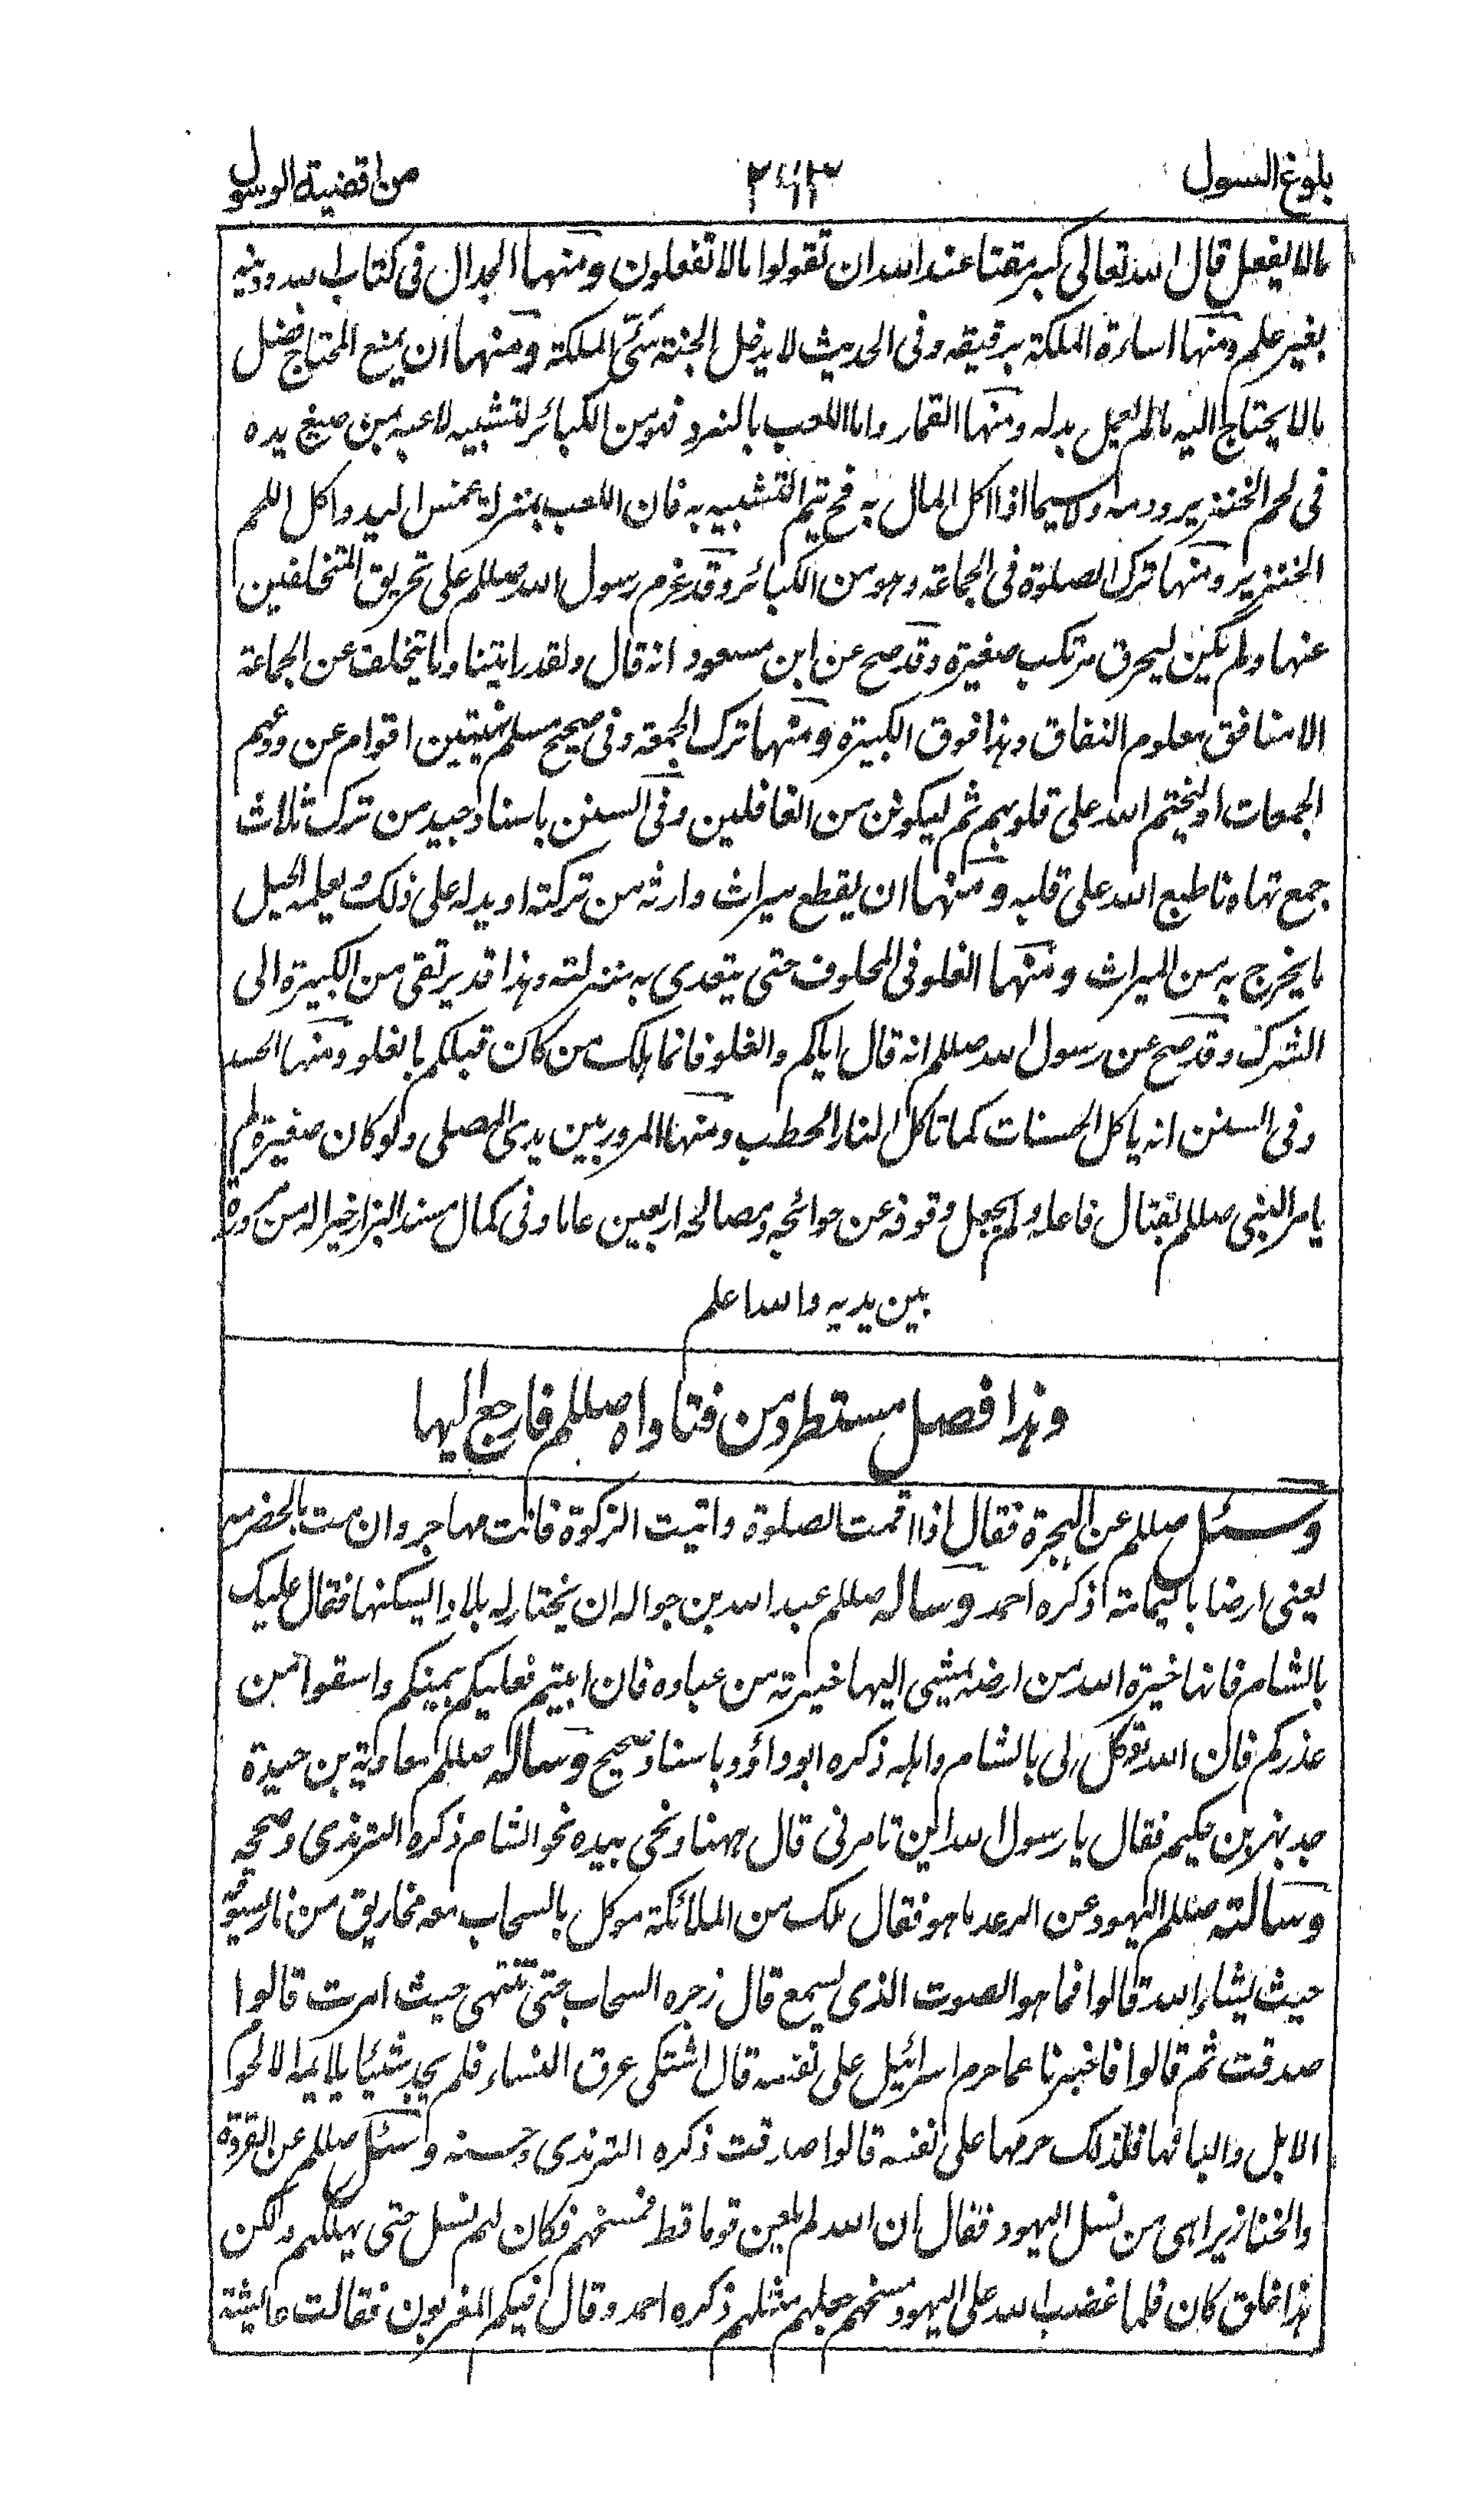 بلوغ السول
من اقضية الرسول
مالا يفعل قال الله تعالى كبر مقتا عند الله ان تقولوا مالا تفعلون ومنها الجدال فى كتاب الله ودينه
بغير علم ومنها اساءة الملكة برقيقه وفى الحديث لا يدخل الجنة سَىّئ الملكة ومنها ان يمنع المحتاج فضل
مالا يحتاج اليه مالم تعمل يداه ومنها القمار واما اللعب بالنرد فهو من الكبائر لتشبيه لاعبه بمن صبغ يده
فى لحم الخنزير ودمه ولاسيما اذا اكل المال به فح يتم التشبيه به فان اللعب بمنزلة غمس اليد واكل اللحم
الخنزير ومنها ترك الصلوة فى الجماعة وهو من الكبائر وقد عزم رسول الله صللم على تحريق المتخلفين
عنها ولم يكن ليحرق مرتكب صغيرة وقد صح عن ابن مسعود انه قال ولقد رايتنا وما يتخلف عن الجماعة
الا منافق معلوم النفاق وهذا فوق الكبيرة ومنها ترك الجمعة وفى صحيح مسلم لينتهين اقوام عن ودعهم
الجمعات او ليختم الله على قلوبهم ثم ليكونن من الغافلين وفى السنن باسناد جيد من ترك ثلاث
جمع تهاونا طبع الله على قلبه ومنها ان يقطع ميراث وارثه من تركته او يدله على ذلك ويعلمه الحيل
ما يخرج به من الميراث ومنها الغلو فى المخلوق حتى يتعدى به منزلته وهذا قد يرتقى من الكبيرة الى
الشرك وقد صح عن رسول الله صللم انه قال اياكم والغلو فانما هلك من كان قبلكم بالغلو ومنها الحسد
وفى السنن انه ياكل الحسنات كما تاكل النار الحطب ومنها المرور بين يدى المصلى ولو كان صغيرة لم
يامر النبى صللم بقتال فاعله ولم يجعل وقوفه عن حوائجه ومصالحه اربعين عاما وفى كمال مسند البزار خيرا له من مروره
بين يديه والله اعلم
وهذا فصل مستطرد من فتاواه صللم فارجع اليها
وسئل صللم عن الهجرة فقال اذا اقمت الصلوة واتيت الزكوة فانت مهاجر وان مت بالحضرمة
يعنى ارضا باليمامة ذكره احمد وساله صللم عبد الله بن حواله ان يختار له بلادا يسكنها فقال عليك
بالشام فانها خيرة الله من ارضه يجتبى اليها خيرته من عباده فان ابيتم فعليكم بيمنكم واسقوا من
غدركم فان الله توكل لى بالشام واهله ذكره ابو داؤد باسناد صحيح وساله صللم معاوية بن حيدة
جد بهز بن حكيم فقال يا رسول الله اين تامرنى قال ههنا ونحى بيده نحو الشام ذكره الترمذى وصححه
وسالته صللم اليهود عن الرعد ما هو فقال ملك من الملائكة موكل بالسحاب معه مخاريق من نار يسوقه
حيث يشاء الله قالوا فما هو الصوت الذى يسمع قال زجره السحاب حتى تنتهى حيث امرت قالوا
صدقت ثم قالوا فاخبرنا عما حرم اسرائيل على نفسه قال اشتكى عرق النساء فلم يجد شيئا يلايمه الا لحوم
الابل والبانها فلذلك حرمها على نفسه قالوا صدقت ذكره الترمذى وحسنه وسئل صللم عن القردة
والخنازير اهى من نسل اليهود فقال ان الله لم يلعن قوما قط فمسخهم فكان لهم نسل حتى يهلكهم ولكن
هذا خلق كان فلما غضب الله على اليهود مسخهم جعلهم مثلهم ذكره احمد وقال فيكم المغربون فقالت عايشة